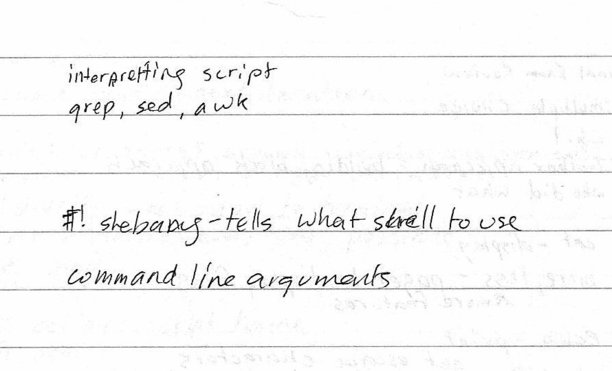 interpretting script
grep, sed, awk
#! shebang - tells what shell to use
command line arguments